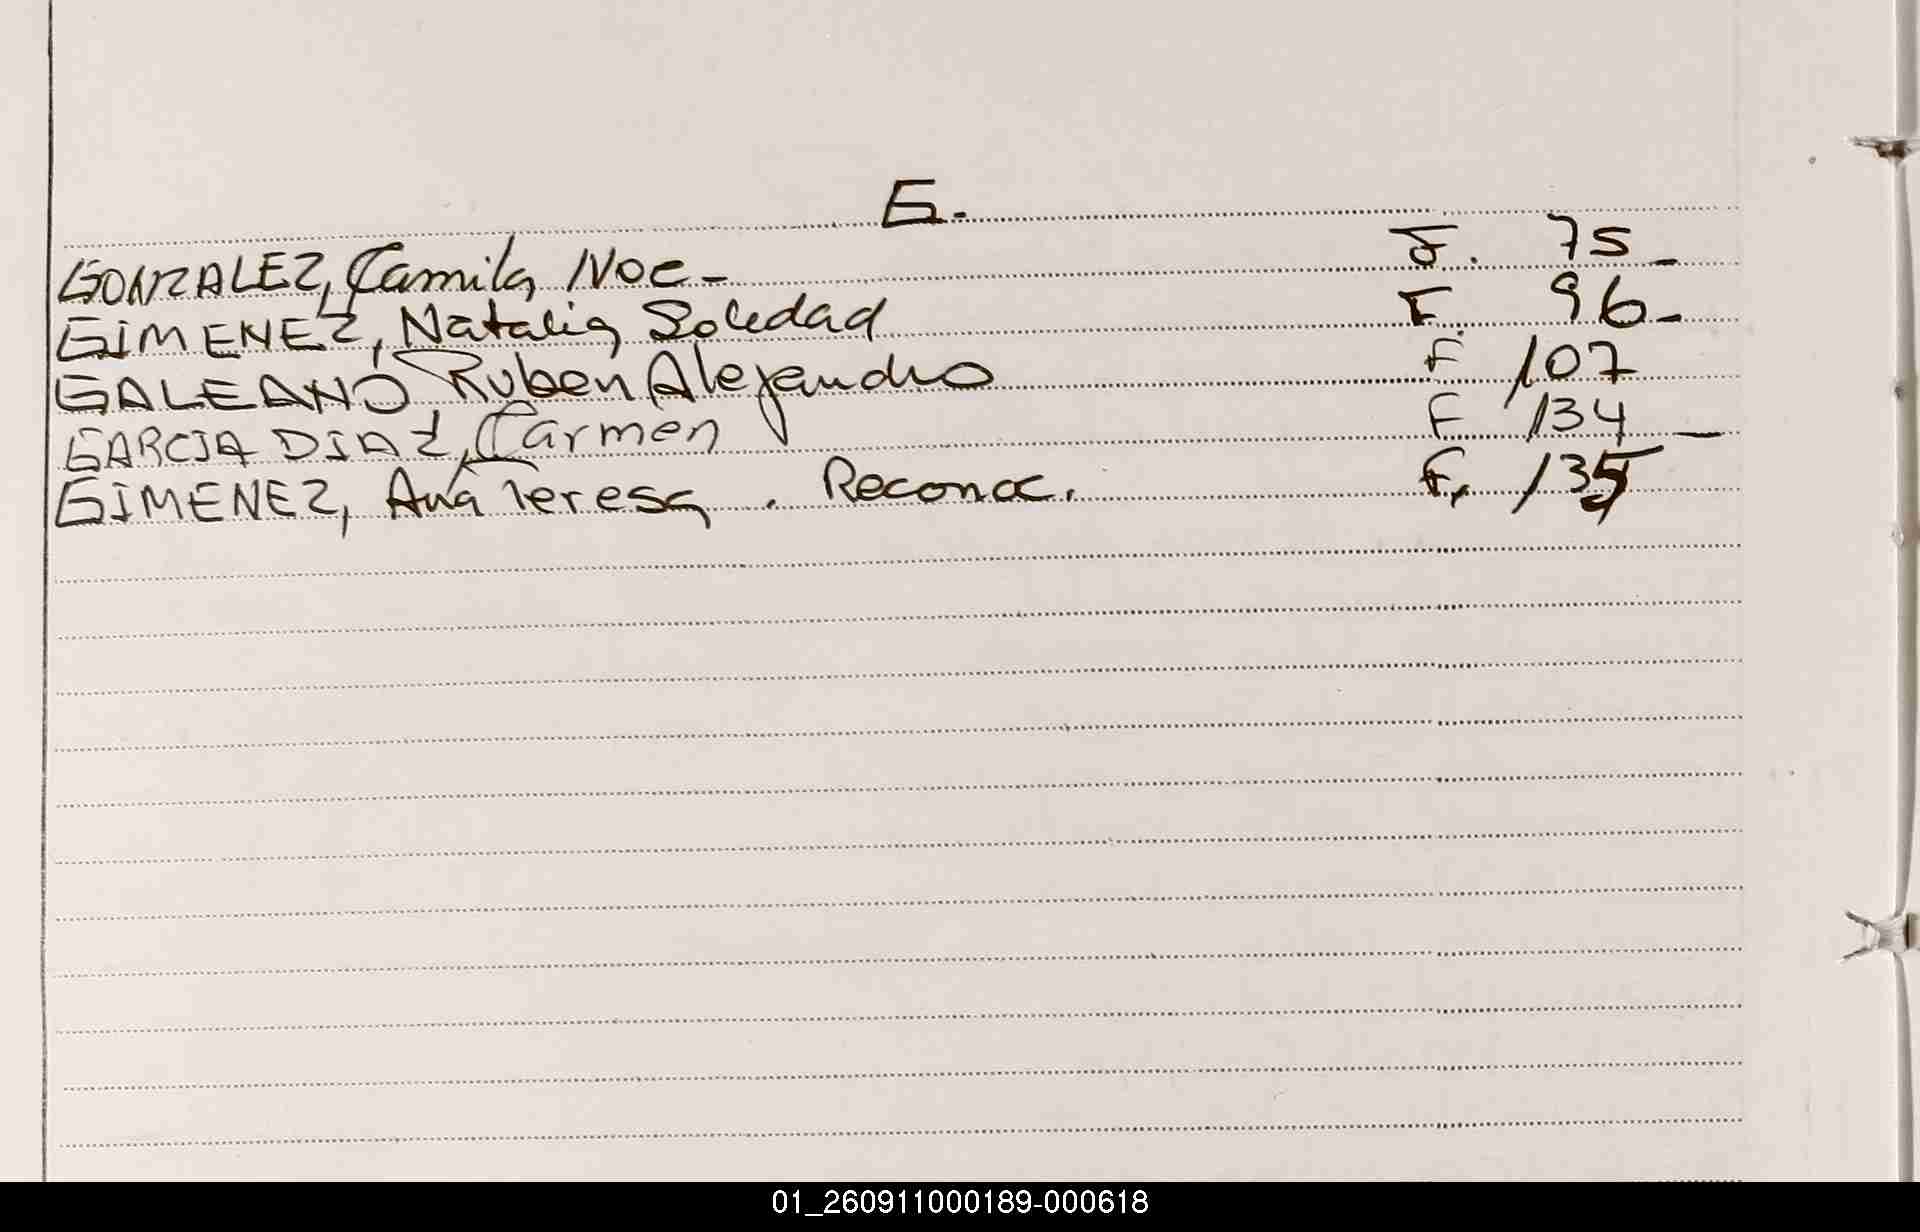 G.
GONZALEZ, Camila Noe - F. 75 -
GIMENEZ, Natalia Soledad F. 96 -
GALEANO, Ruben Alejandro F 107
GARCIA DIAZ, Carmen F 134 -
GIMENEZ, Ana Teresa. Reconoc. F. 135
01_260911000189-000618